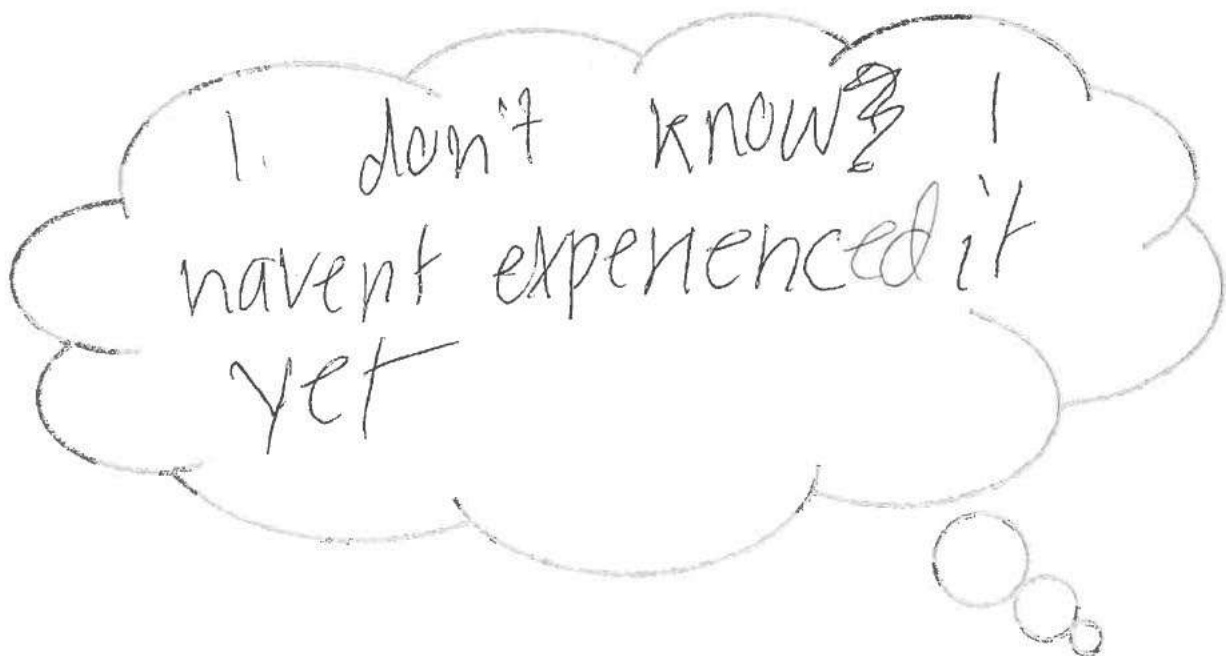 I don't know I
havent experienced it
yet